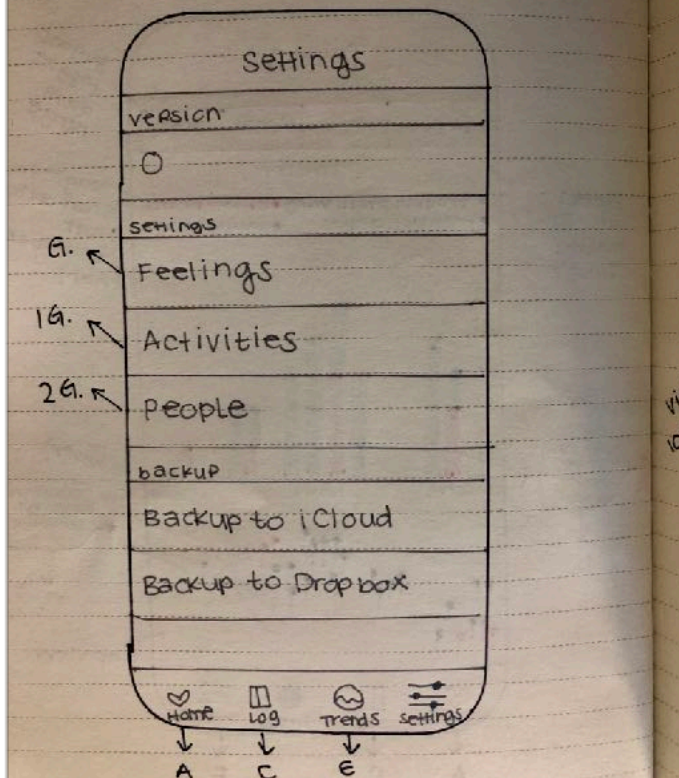 Settings
version
0
settings
G.
Feelings
1G.
Activities
2G.
people
backup
Backup to iCloud
Backup to Dropbox
Home Log Trends settings
A C E